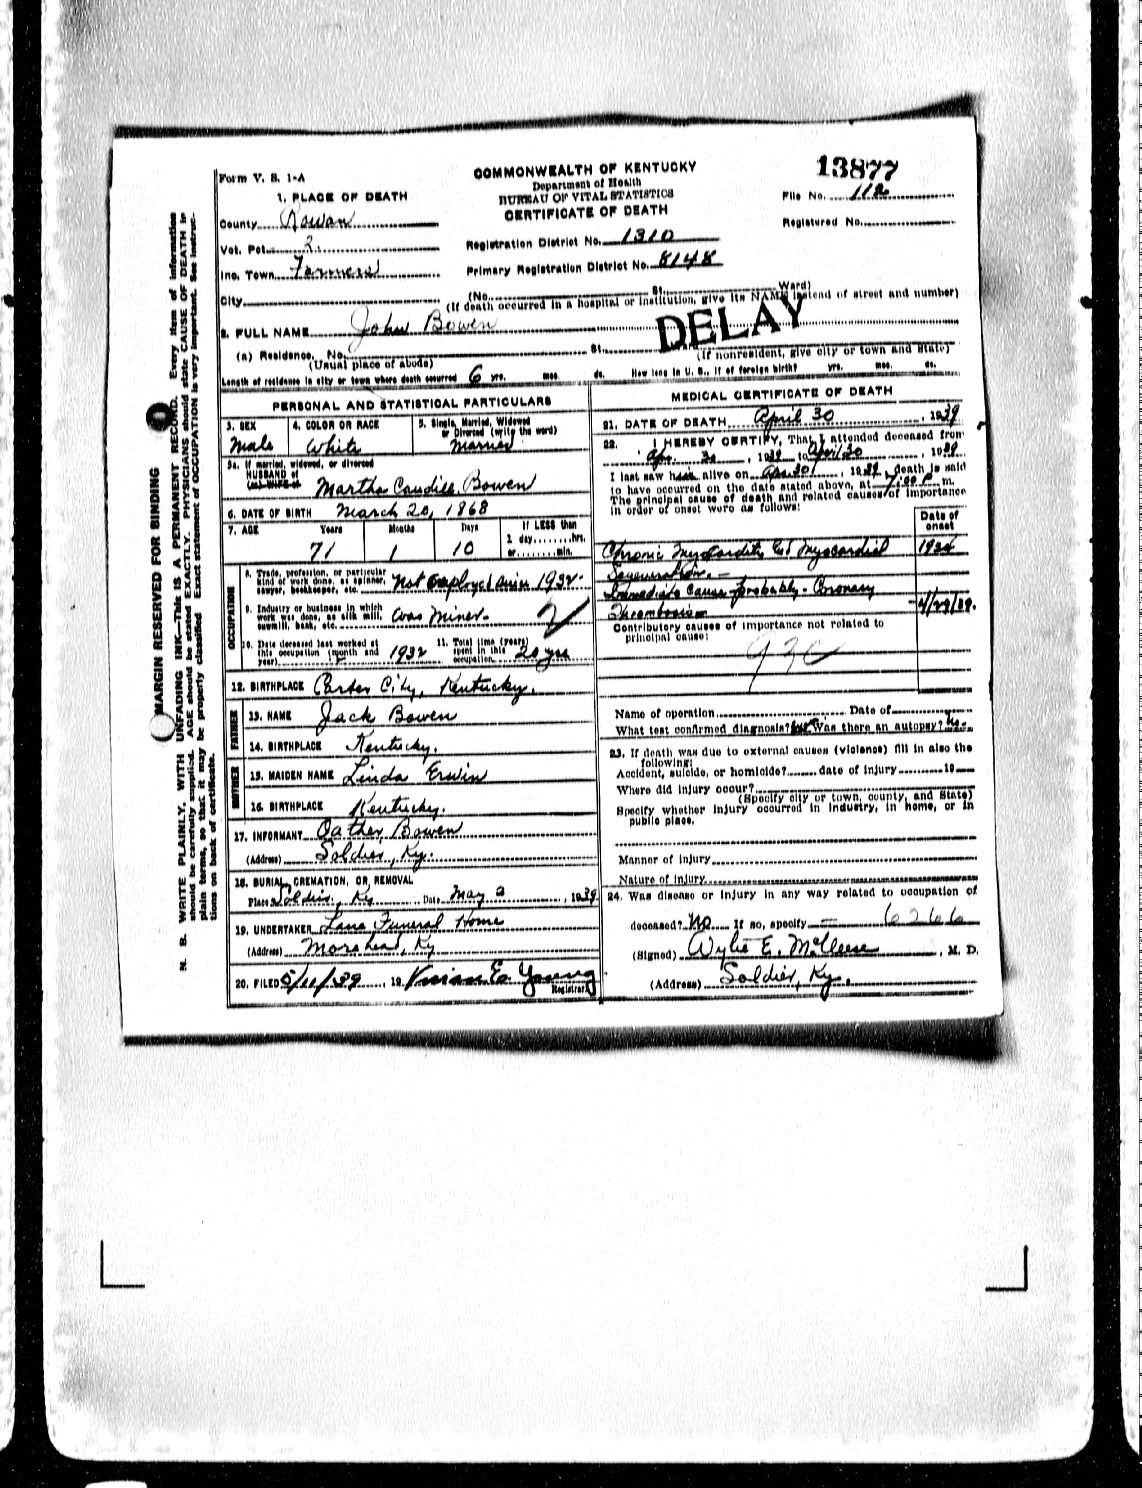 Form V. S. 1-A
COMMONWEALTH OF KENTUCKY
Department of Health
BUREAU OF VITAL STATISTICS
CERTIFICATE OF DEATH
13877
File No. 112
Registered No.
1. PLACE OF DEATH
County Rowan
Vot. Pct. 2
Inc. Town Farmers
City
Registration District No. 1310
Primary Registration District No. 8148
(No. St. Ward)
(If death occurred in a hospital or institution, give its NAME instead of street and number)
2. FULL NAME John Bowen
DELAY
(a) Residence. No. St.
(Usual place of abode) (If nonresident, give city or town and State)
Length of residence in city or town where death occurred 6 yrs. mos. ds. How long in U. S., if of foreign birth? yrs. mos. ds.
PERSONAL AND STATISTICAL PARTICULARS
3. SEX 4. COLOR OR RACE 5. Single, Married, Widowed or Divorced (write the word)
Male White Married
5a. If married, widowed, or divorced
HUSBAND of
(or) WIFE of Martha Caudill Bowen
6. DATE OF BIRTH March 20, 1868
7. AGE Years Months Days If LESS than
1 day, hrs.
71 1 10 or min.
OCCUPATION
8. Trade, profession, or particular kind of work done, as spinner, sawyer, bookkeeper, etc. Not employed since 1932
9. Industry or business in which work was done, as silk mill, sawmill, bank, etc. Was Miner
10. Date deceased last worked at this occupation (month and year) 1932
11. Total time (years) spent in this occupation 20 yrs
12. BIRTHPLACE Carter City, Kentucky.
FATHER
13. NAME Jack Bowen
14. BIRTHPLACE Kentucky.
MOTHER
15. MAIDEN NAME Linda Erwin
16. BIRTHPLACE Kentucky.
17. INFORMANT Oather Bowen
(Address) Soldier, Ky.
18. BURIAL, CREMATION, OR REMOVAL
Place Soldier, Ky Date May 2, 1939
19. UNDERTAKER Lane Funeral Home
(Address) Morehead, Ky
20. FILED 5/11/39, 19 Vivian E. Young
Registrar
MEDICAL CERTIFICATE OF DEATH
21. DATE OF DEATH April 30, 1939
22. I HEREBY CERTIFY, That I attended deceased from
Apr. 30, 1939 to April 30, 1939
I last saw him alive on Apr 30, 1939, death is said
to have occurred on the date stated above, at 7:00 P m.
The principal cause of death and related causes of importance
in order of onset were as follows:
Date of onset
Chronic Myocarditis, Myocardial
Degeneration.
Immediate cause probably - Coronary
Thrombosis 4/29/39.
Contributory causes of importance not related to
principal cause:
Name of operation Date of
What test confirmed diagnosis? Was there an autopsy? No.
23. If death was due to external causes (violence) fill in also the
following:
Accident, suicide, or homicide? date of injury 19
Where did injury occur?
(Specify city or town, county, and State)
Specify whether injury occurred in industry, in home, or in
public place.
Manner of injury
Nature of injury
24. Was disease or injury in any way related to occupation of
deceased? No If so, specify — 6266
(Signed) Wylie E. McCleese, M. D.
(Address) Soldier, Ky.
MARGIN RESERVED FOR BINDING
N. B. WRITE PLAINLY, WITH UNFADING INK—THIS IS A PERMANENT RECORD. Every item of information
should be carefully supplied. AGE should be stated EXACTLY. PHYSICIANS should state CAUSE OF DEATH in
plain terms, so that it may be properly classified. Exact statement of OCCUPATION is very important. See instruc-
tions on back of certificate.